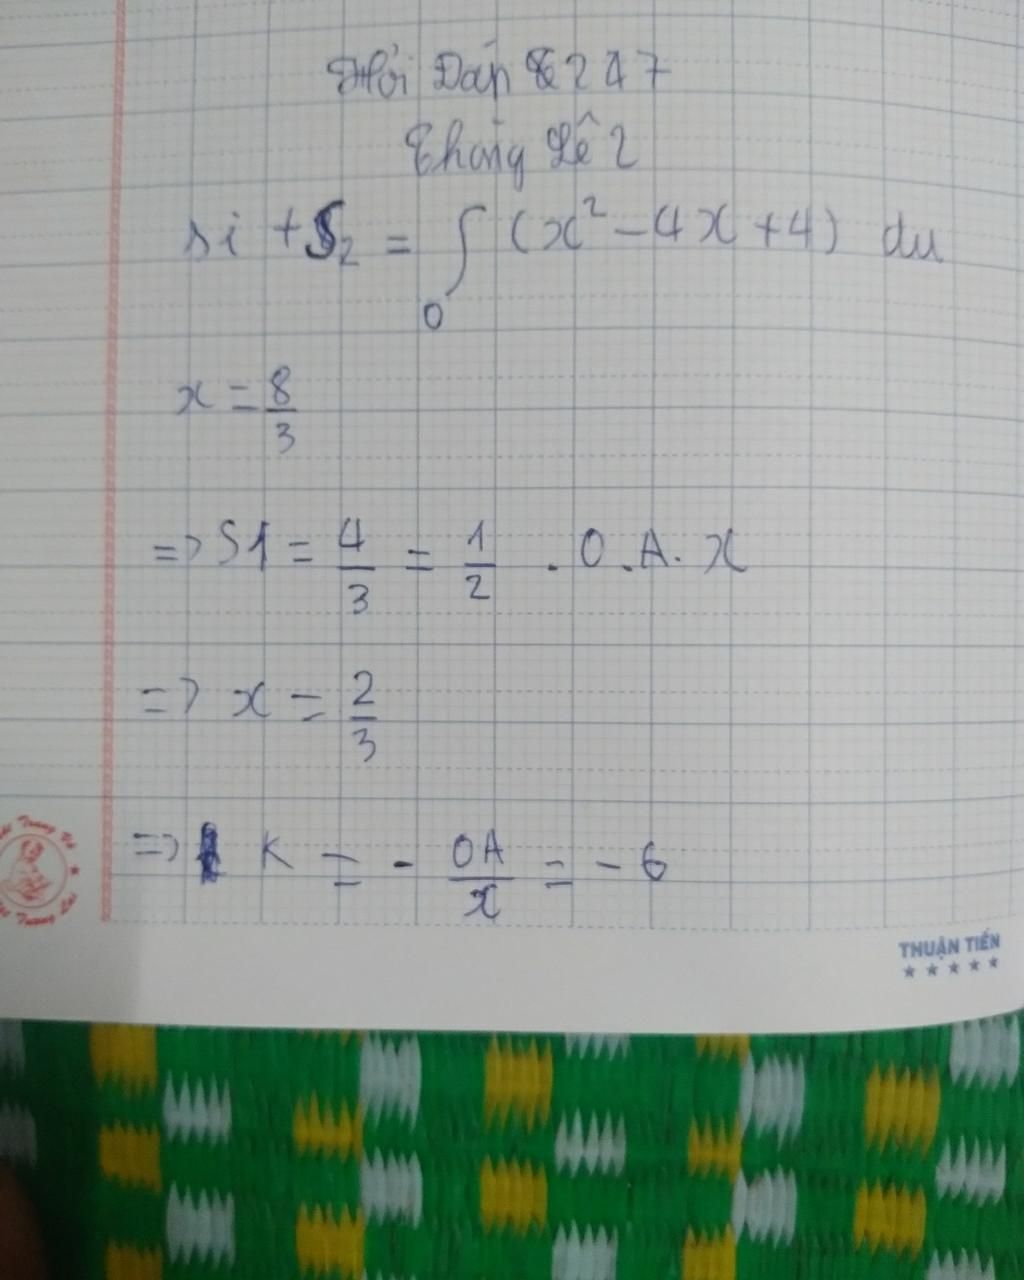 Hỏi Đáp 247
Thắng Lê 2
si + S₂ = ∫₀ (x² - 4x + 4) du
x = 8/3
=> S1 = 4/3 = 1/2 . O . A . x
=> x = 2/3
=> K = - OA/x = - 6
THUẬN TIẾN